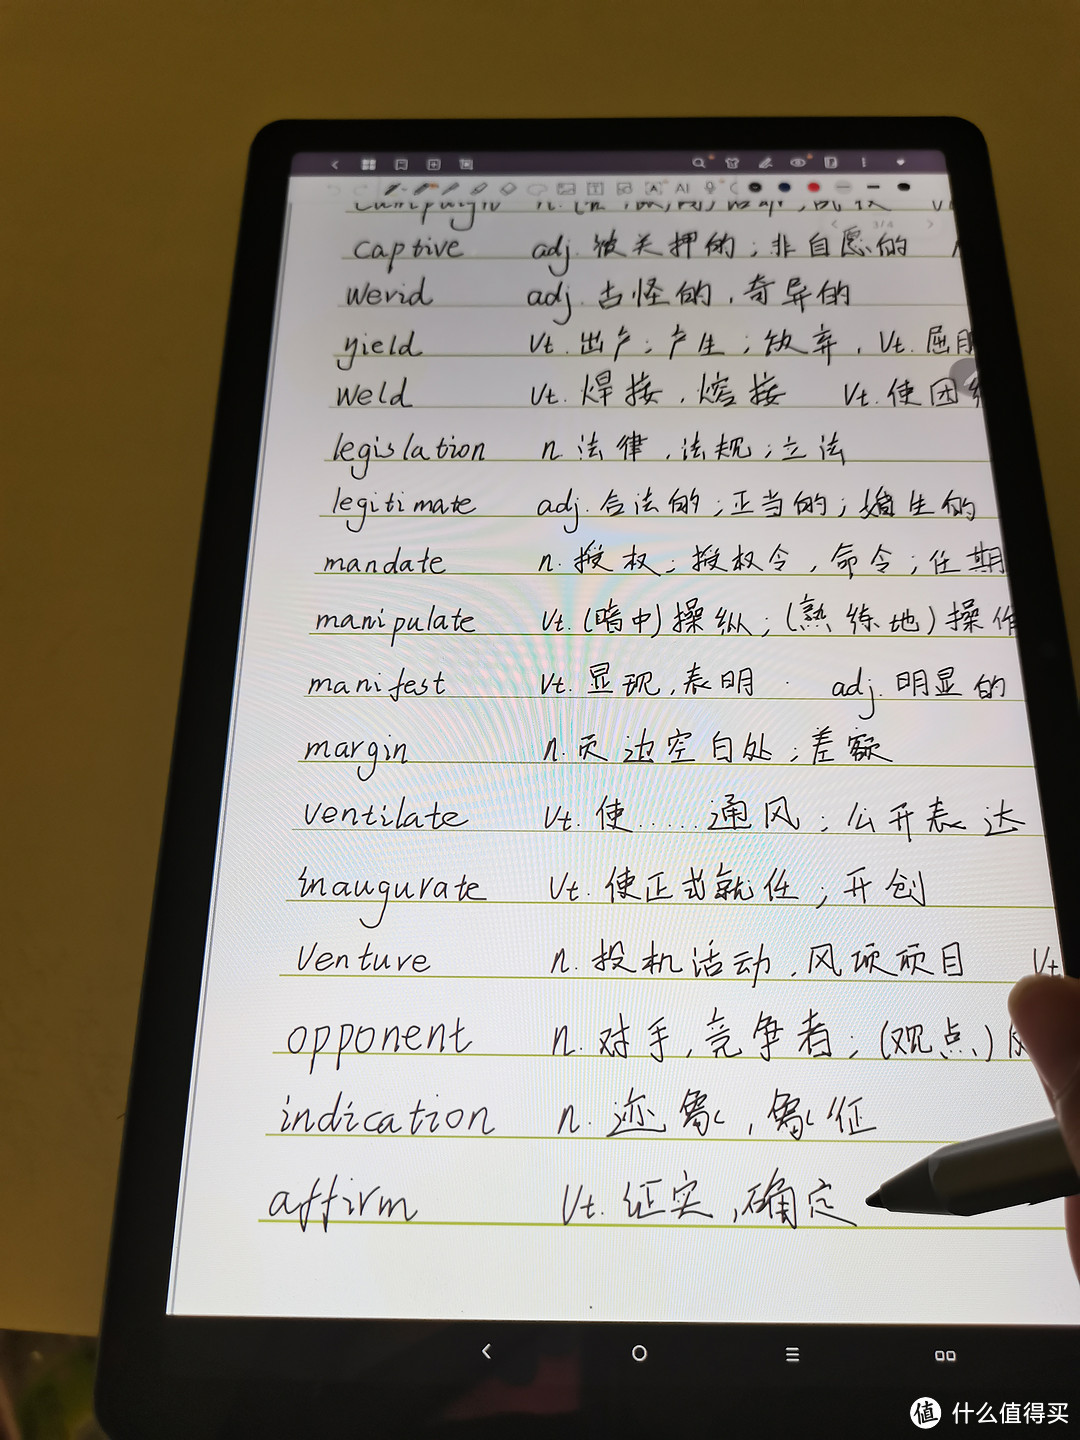 3/4
captive adj. 被关押的；非自愿的
werid adj. 古怪的，奇异的
yield vt. 出产；产生；放弃，vt. 屈服
weld vt. 焊接，熔接 vt. 使团
legislation n. 法律，法规；立法
legitimate adj. 合法的；正当的；婚生的
mandate n. 授权；授权令，命令；任期
manipulate vt. (暗中)操纵；(熟练地)操作
manifest vt. 显现，表明 adj. 明显的
margin n. 页边空白处；差额
ventilate vt. 使……通风；公开表达
inaugurate vt. 使正式就任；开创
venture n. 投机活动，风项项目 vt
opponent n. 对手，竞争者；(观点)
indication n. 迹象，象征
affirm vt. 证实，确定
值 什么值得买